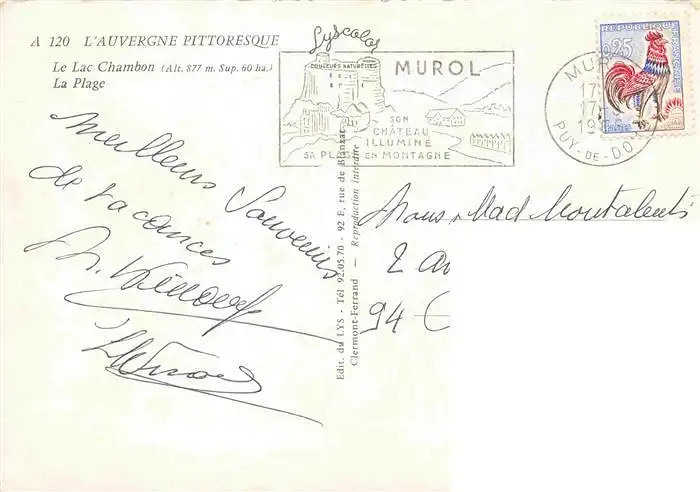 A 120 L'AUVERGNE PITTORESQUE
Le Lac Chambon (Alt. 877 m. Sup. 60 ha.)
La Plage
Lyscolor
COULEURS NATURELLES
MUROL
SON
CHÂTEAU
ILLUMINÉ
SA PLAGE EN MONTAGNE
REPUBLIQUE FRANÇAISE
0,25
MUROL
17
17
19
PUY-DE-DO
Meilleurs Souvenirs
de vacances
Edit. du LYS - Tél 92.05.70 - 92 E, rue de Blanzat
Clermont-Ferrand — Reproduction interdite
Mons. Mad Montalenti
2 av
94